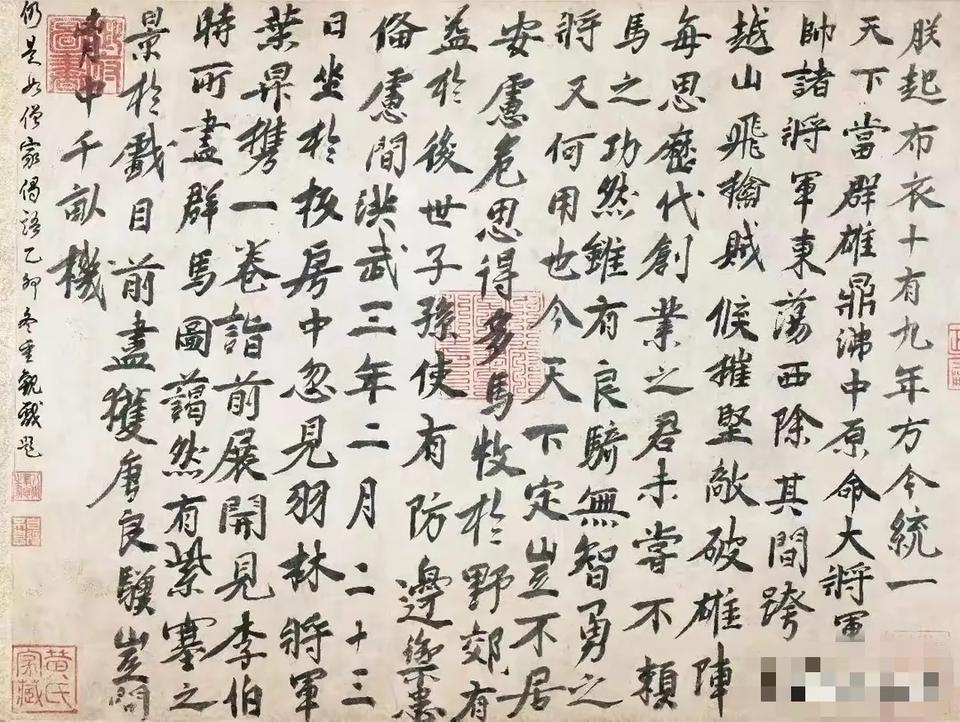 朕起布衣十有九年方今統一
天下當群雄鼎沸中原命大將軍
帥諸將軍東蕩西除其間跨
越山飛擒賊候摧堅敵破雄陣
每思歷代創業之君未嘗不賴
馬之功然雖有良騎無智勇之
將又何用也今天下定豈不居
安慮危思得多馬牧於野郊有
益於後世子孫使有防邊禦患
俻慮間洪武三年二月二十三
日坐於板房中忽見羽林將軍
葉昇攜一卷詣前展開見李伯
時所畫群馬圖藹然有紫塞之
景於戲目前盡獲唐良驥豈問
胷中千畝機
仍是如僧家偈語乙卯冬重觀戲題
黃氏家藏